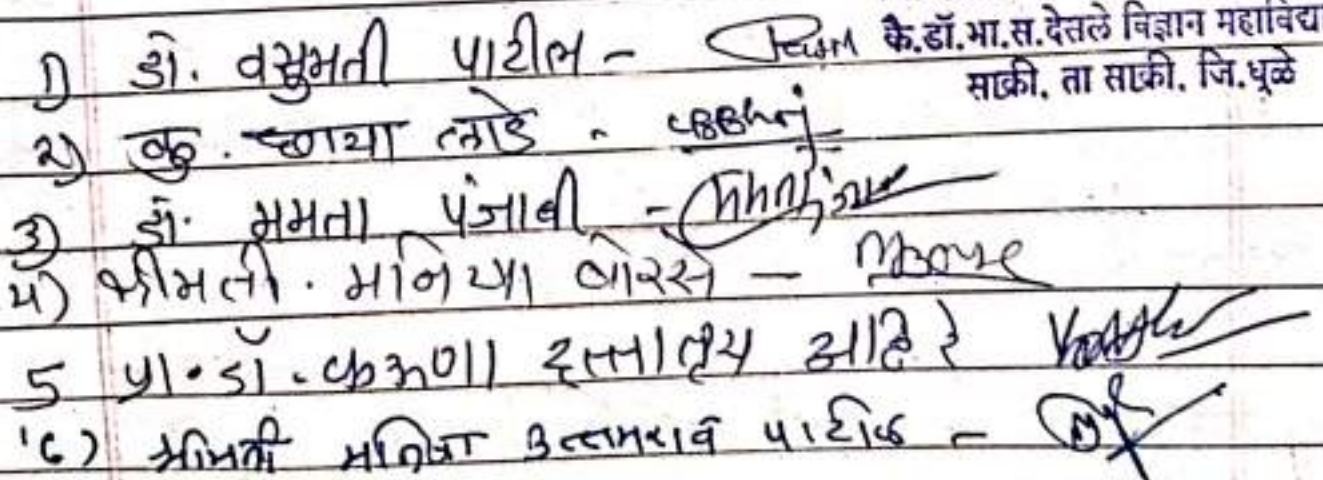 1) डॉ. वसुमती पाटील -
कै.डॉ.भा.स.देसले विज्ञान महाविद्या
साक्री, ता साक्री. जि.धूळे
2) कु. छाया लाडे -
3) डॉ. ममता पंजाबी -
4) श्रीमती. मनिषा बोरसे -
5 प्रा. डॉ. करुणा दत्तात्रय आहिरे
6) श्रीमती मनिषा उत्तमराव पाटील -